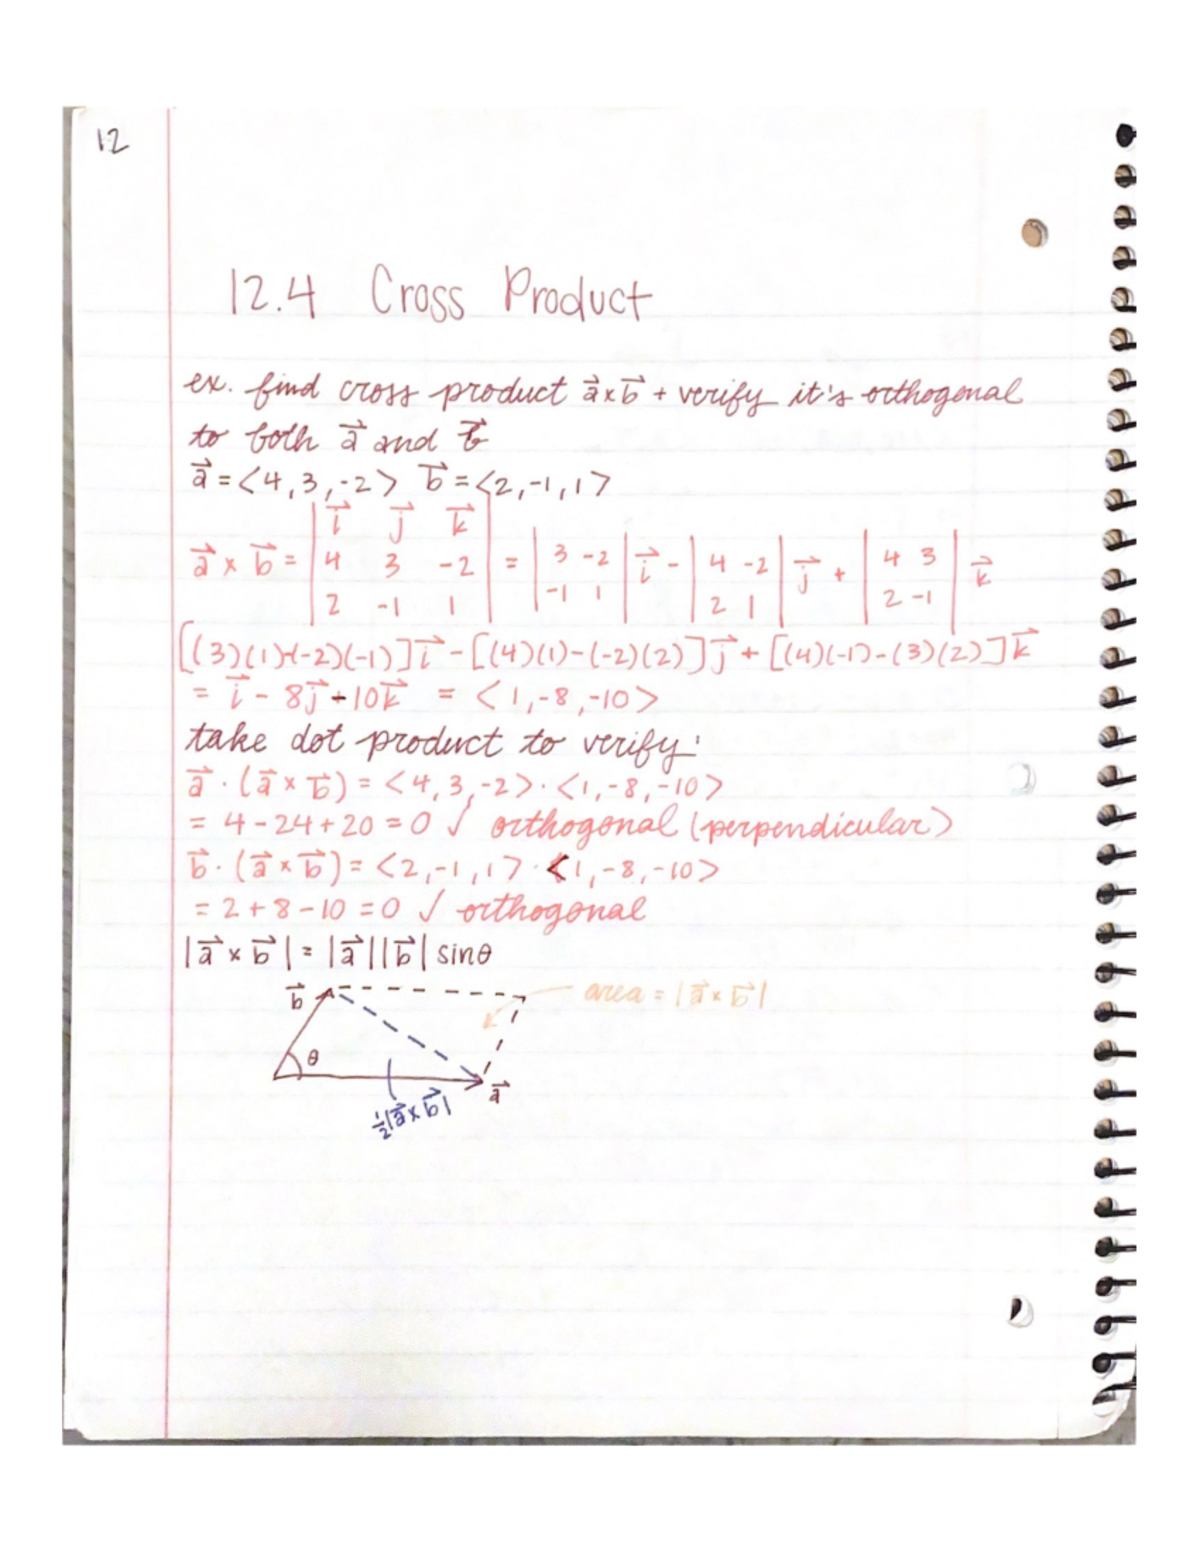 12
12.4 Cross Product
ex. find cross product a⃗ x b⃗ + verify it's orthogonal
to both a⃗ and b⃗
a⃗ = <4, 3, -2> b⃗ = <2, -1, 1>
a⃗ x b⃗ = | i⃗ j⃗ k⃗ | = | 3 -2 | i⃗ - | 4 -2 | j⃗ + | 4 3 | k⃗
4 3 -2 -1 1 2 1 2 -1
2 -1 1
[(3)(1)-(-2)(-1)] i⃗ - [(4)(1)-(-2)(2)] j⃗ + [(4)(-1)-(3)(2)] k⃗
= i⃗ - 8j⃗ - 10k⃗ = <1, -8, -10>
take dot product to verify:
a⃗ · (a⃗ x b⃗) = <4, 3, -2> · <1, -8, -10>
= 4 - 24 + 20 = 0 ✓ orthogonal (perpendicular)
b⃗ · (a⃗ x b⃗) = <2, -1, 1> · <1, -8, -10>
= 2 + 8 - 10 = 0 ✓ orthogonal
|a⃗ x b⃗| = |a⃗||b⃗| sinθ
b⃗ area = |a⃗ x b⃗|
θ
a⃗
½|a⃗ x b⃗|